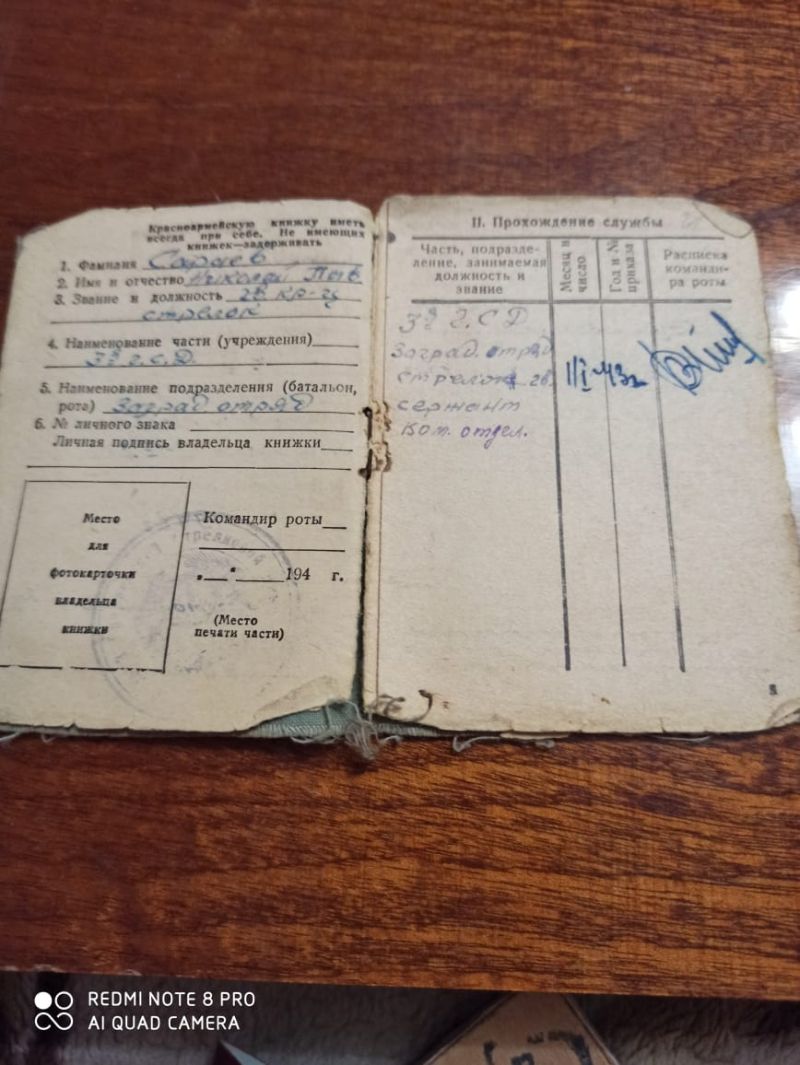 Красноармейскую книжку иметь
всегда при себе. Не имеющих
книжек—задерживать
1. Фамилия Сараев
2. Имя и отчество Николай
3. Звание и должность гв. кр-ц
стрелок
4. Наименование части (учреждения)
3я г.С.Д.
5. Наименование подразделения (батальон,
рота) Заград отряд
6. № личного знака
Личная подпись владельца книжки
Место
для
фотокарточки
владельца
книжки
Командир роты
„ “ 194 г.
(Место
печати части)
II. Прохождение службы
Часть, подразде-
ление, занимаемая
должность и
звание
Месяц и
число
Год и №
приказа
Расписка
команди-
ра роты
3я г.С.Д
Заград. отряд
стрелок гв.
сержант
Ком. отдел.
43г